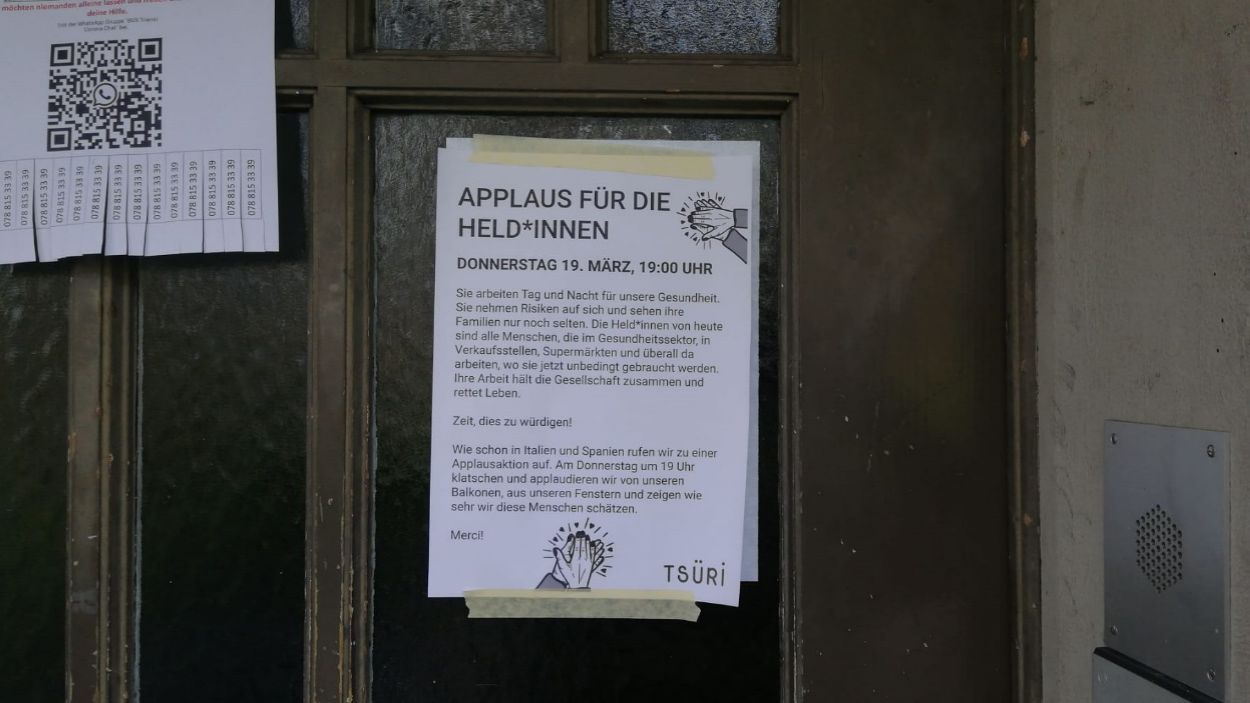 möchten niemanden alleine lassen und
deine Hilfe.
078 815 33 39
078 815 33 39
078 815 33 39
078 815 33 39
078 815 33 39
078 815 33 39
078 815 33 39
078 815 33 39
078 815 33 39
078 815 33 39
078 815 33 39
078 815 33 39
078 815 33 39
078 815 33 39
APPLAUS FÜR DIE
HELD*INNEN
DONNERSTAG 19. MÄRZ, 19:00 UHR
Sie arbeiten Tag und Nacht für unsere Gesundheit.
Sie nehmen Risiken auf sich und sehen ihre
Familien nur noch selten. Die Held*innen von heute
sind alle Menschen, die im Gesundheitssektor, in
Verkaufsstellen, Supermärkten und überall da
arbeiten, wo sie jetzt unbedingt gebraucht werden.
Ihre Arbeit hält die Gesellschaft zusammen und
rettet Leben.
Zeit, dies zu würdigen!
Wie schon in Italien und Spanien rufen wir zu einer
Applausaktion auf. Am Donnerstag um 19 Uhr
klatschen und applaudieren wir von unseren
Balkonen, aus unseren Fenstern und zeigen wie
sehr wir diese Menschen schätzen.
Merci!
TSÜRI